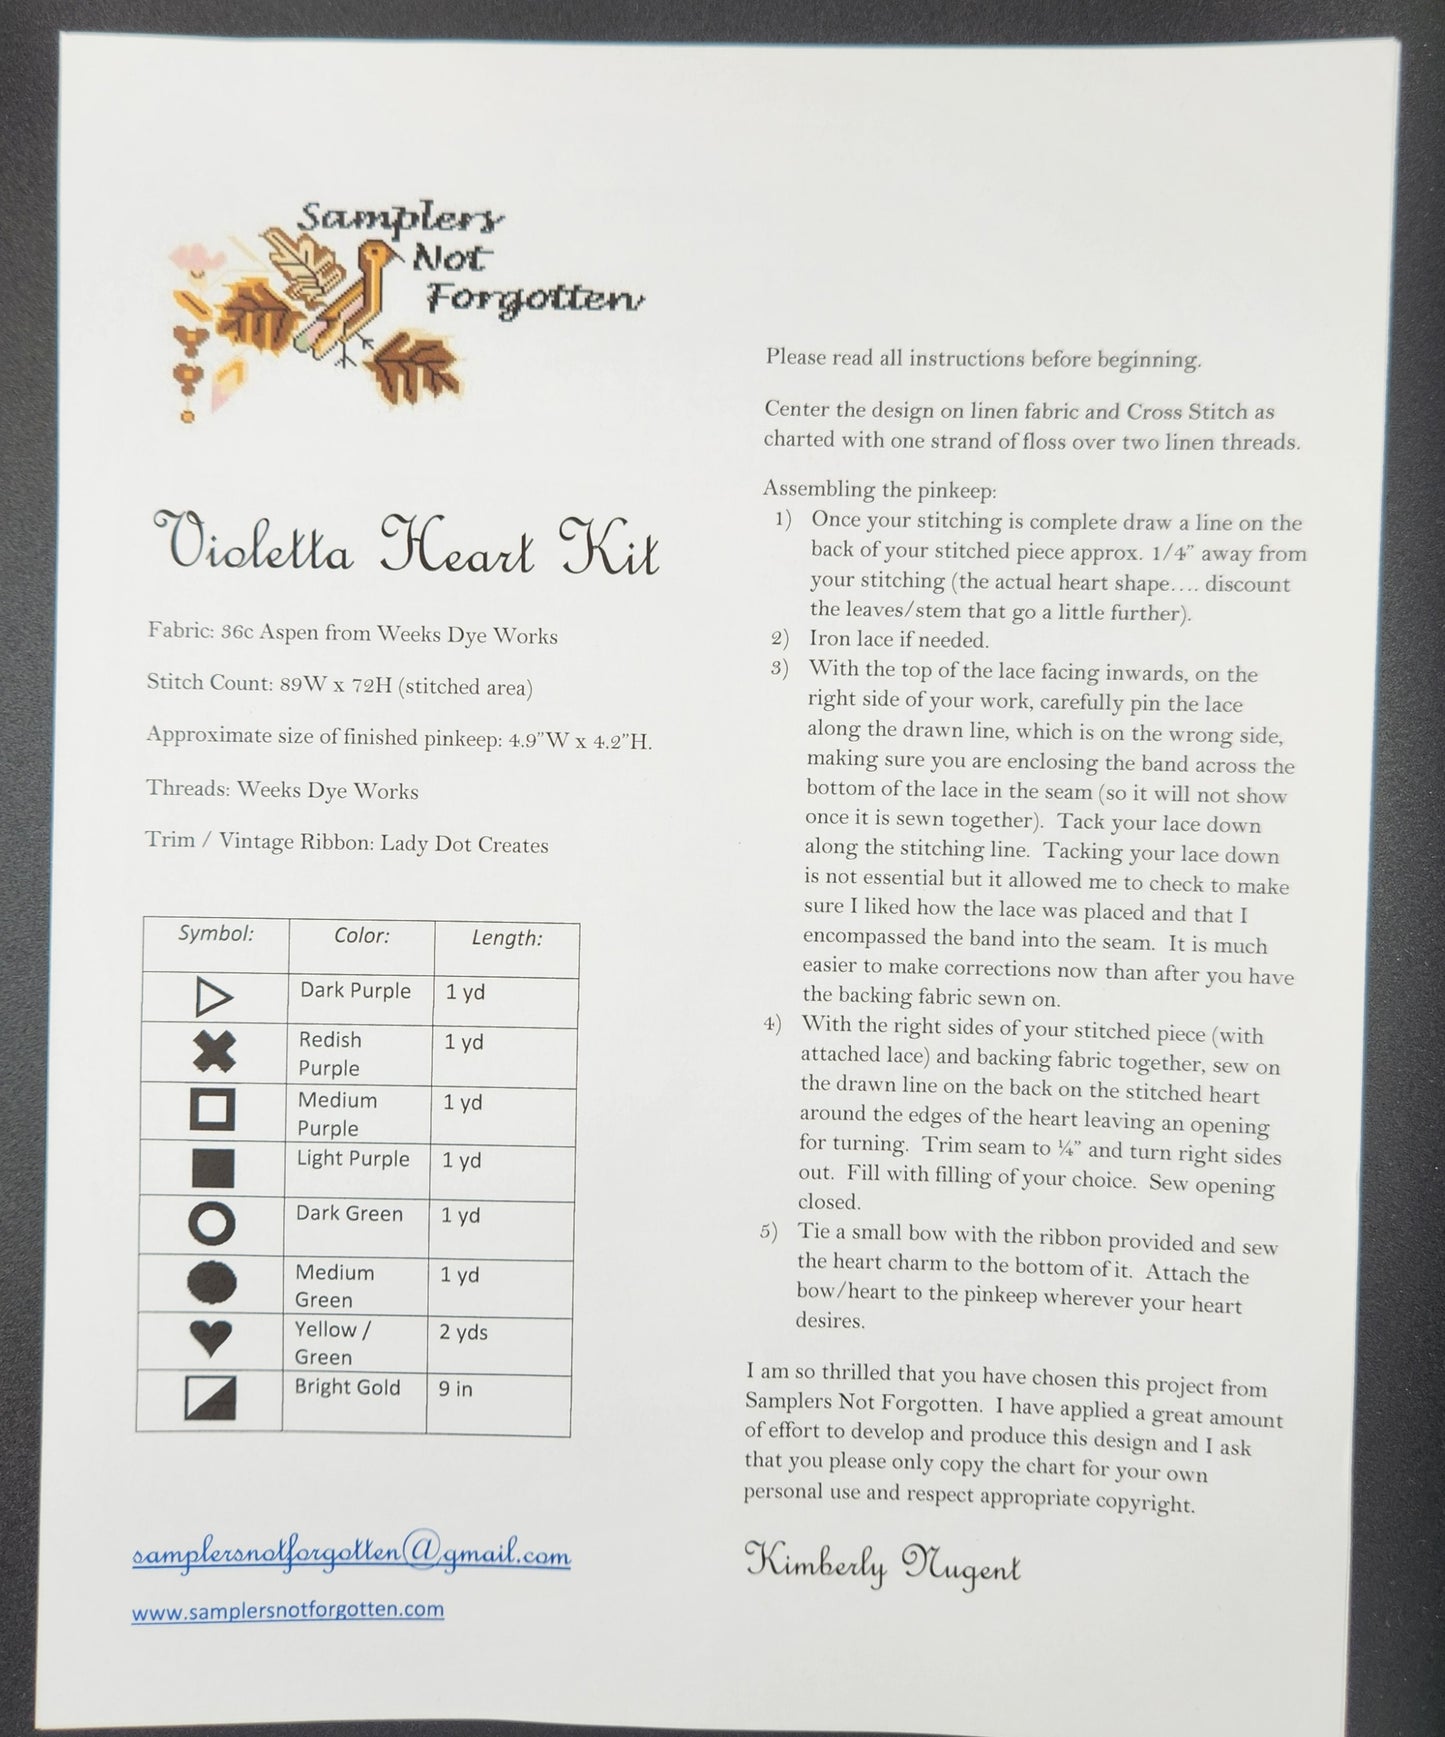 Samplers
Not
Forgotten
Violetta Heart Kit
Fabric: 36c Aspen from Weeks Dye Works
Stitch Count: 89W x 72H (stitched area)
Approximate size of finished pinkeep: 4.9”W x 4.2”H.
Threads: Weeks Dye Works
Trim / Vintage Ribbon: Lady Dot Creates
Symbol: Color: Length:
Dark Purple 1 yd
Redish
Purple 1 yd
Medium
Purple 1 yd
Light Purple 1 yd
Dark Green 1 yd
Medium
Green 1 yd
Yellow /
Green 2 yds
Bright Gold 9 in
samplersnotforgotten@gmail.com
www.samplersnotforgotten.com
Please read all instructions before beginning.
Center the design on linen fabric and Cross Stitch as
charted with one strand of floss over two linen threads.
Assembling the pinkeep:
1) Once your stitching is complete draw a line on the
back of your stitched piece approx. 1/4” away from
your stitching (the actual heart shape.... discount
the leaves/stem that go a little further).
2) Iron lace if needed.
3) With the top of the lace facing inwards, on the
right side of your work, carefully pin the lace
along the drawn line, which is on the wrong side,
making sure you are enclosing the band across the
bottom of the lace in the seam (so it will not show
once it is sewn together). Tack your lace down
along the stitching line. Tacking your lace down
is not essential but it allowed me to check to make
sure I liked how the lace was placed and that I
encompassed the band into the seam. It is much
easier to make corrections now than after you have
the backing fabric sewn on.
4) With the right sides of your stitched piece (with
attached lace) and backing fabric together, sew on
the drawn line on the back on the stitched heart
around the edges of the heart leaving an opening
for turning. Trim seam to ¼” and turn right sides
out. Fill with filling of your choice. Sew opening
closed.
5) Tie a small bow with the ribbon provided and sew
the heart charm to the bottom of it. Attach the
bow/heart to the pinkeep wherever your heart
desires.
I am so thrilled that you have chosen this project from
Samplers Not Forgotten. I have applied a great amount
of effort to develop and produce this design and I ask
that you please only copy the chart for your own
personal use and respect appropriate copyright.
Kimberly Nugent